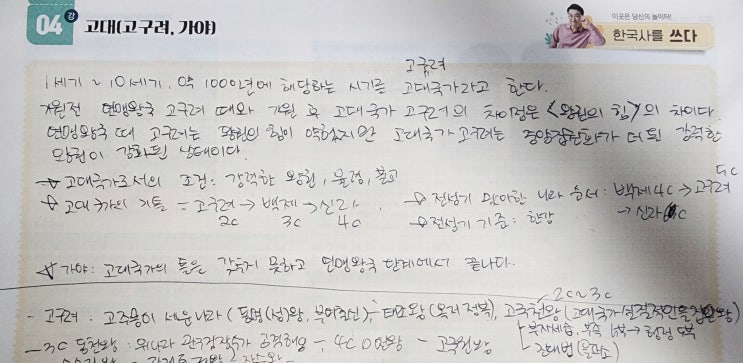 04강 고대(고구려, 가야)
이곳은 당신의 놀이터!
한국사를 쓰다
고구려
1세기~10세기, 약 1000년에 해당하는 시기를 고대국가라고 한다.
기원전 연맹왕국 고구려 때와 기원 후 고대국가 고구려의 차이점은 <왕권의 힘>의 차이다.
연맹왕국 때 고구려는 왕권의 힘이 약했지만 고대국가 고구려는 중앙집권화가 더 된 강력한
왕권이 강화된 상태이다.
☆ 고대국가로서의 조건: 강력한 왕권, 율령, 불교
☆ 고대국가의 기틀 = 고구려 → 백제 → 신라
2C 3C 4C
☆ 전성기 맞이한 나라 순서: 백제 4C → 고구려 5C
→ 신라 6C
☆ 전성기 기준: 한강
☆ 가야: 고대국가의 틀은 갖추지 못하고 연맹왕국 단계에서 끝나다.
2C~3C
- 고구려: 고주몽이 세운나라 (동명(성)왕, 부여출신) - 태조왕 (옥저 정복), 고국천왕 (고대국가
부자세습, 5부 → 행정 5부
진대법 (을파소)
- 3C 동천왕: 위나라 관구검장수가 공격해옴 - 4C 미천왕 - 고국원왕